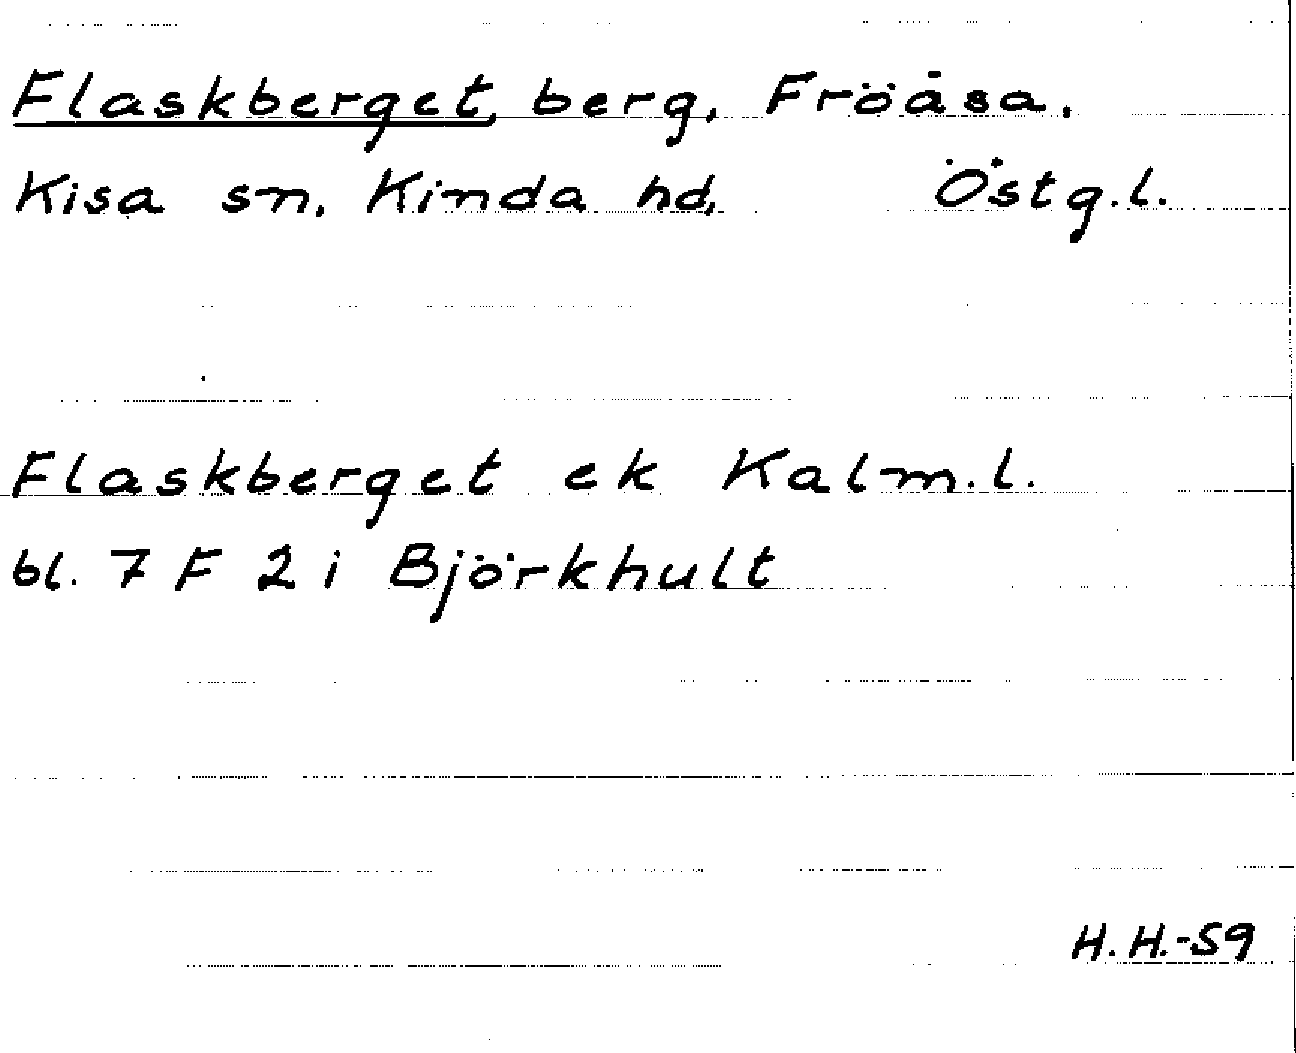 Flaskberget, berg, Fröåsa.
Kisa sn. Kinda hd. Östg.l.
Flaskberget ek Kalm.l.
bl. 7 F 2 i Björkhult
H.H.-59